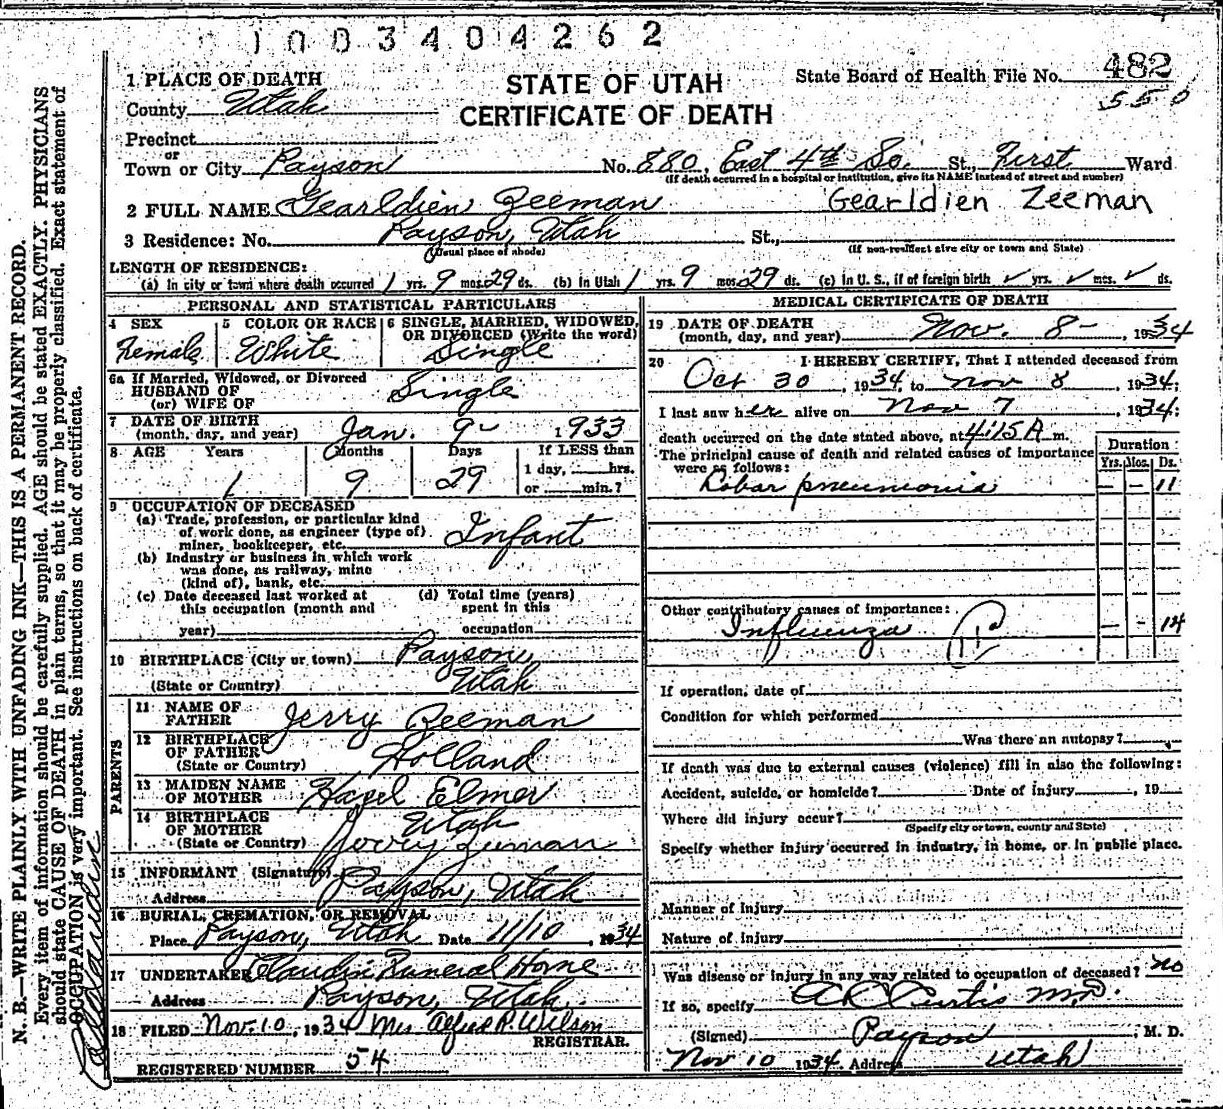 1003404262
1 PLACE OF DEATH
STATE OF UTAH
CERTIFICATE OF DEATH
State Board of Health File No. 482
550
County Utah
Precinct
or
Town or City Payson No. 880 East 4th So. St., First Ward
(If death occurred in a hospital or institution, give its NAME instead of street and number)
2 FULL NAME Gearldien Zeeman Gearldien Zeeman
3 Residence: No. Payson, Utah St.,
(Usual place of abode) (If non-resident give city or town and State)
LENGTH OF RESIDENCE:
(a) In city or town where death occurred 1 yrs. 9 mos. 29 ds. (b) In Utah 1 yrs. 9 mos. 29 ds. (c) In U. S., if of foreign birth ✓ yrs. ✓ mos. ✓ ds.
PERSONAL AND STATISTICAL PARTICULARS
4 SEX Female
5 COLOR OR RACE White
6 SINGLE, MARRIED, WIDOWED, OR DIVORCED (Write the word) Single
6a If Married, Widowed, or Divorced
HUSBAND OF
(or) WIFE OF Single
7 DATE OF BIRTH
(month, day, and year) Jan. 9- 1933
8 AGE Years Months Days If LESS than
1 9 29 1 day, hrs.
or min.?
9 OCCUPATION OF DECEASED
(a) Trade, profession, or particular kind
of work done, as engineer (type of)
miner, bookkeeper, etc. Infant
(b) Industry or business in which work
was done, as railway, mine
(kind of), bank, etc.
(c) Date deceased last worked at
this occupation (month and
year)
(d) Total time (years)
spent in this
occupation
10 BIRTHPLACE (City or town) Payson,
(State or Country) Utah
PARENTS
11 NAME OF
FATHER Jerry Zeeman
12 BIRTHPLACE
OF FATHER
(State or Country) Holland
13 MAIDEN NAME
OF MOTHER Hazel Elmer
14 BIRTHPLACE
OF MOTHER
(State or Country) Utah
15 INFORMANT (Signature) Jerry Zeeman
Address Payson, Utah
16 BURIAL, CREMATION, OR REMOVAL
Place Payson, Utah Date 11/10, 1934
17 UNDERTAKER Claudin Funeral Home
Address Payson, Utah.
18 FILED Nov. 10, 1934 Mrs Alfred R. Wilson
REGISTRAR.
REGISTERED NUMBER 54
MEDICAL CERTIFICATE OF DEATH
19 DATE OF DEATH
(month, day, and year) Nov. 8- 1934
20 I HEREBY CERTIFY, That I attended deceased from
Oct 30, 1934, to Nov 8, 1934;
I last saw her alive on Nov 7, 1934;
death occurred on the date stated above, at 4:15 A m.
The principal cause of death and related causes of importance
were as follows:
Duration
Yrs. Mos. Ds.
Lobar pneumonia - - 11
Other contributory causes of importance:
Influenza - - 14
If operation, date of
Condition for which performed
Was there an autopsy?
If death was due to external causes (violence) fill in also the following:
Accident, suicide, or homicide? Date of injury , 19
Where did injury occur?
(Specify city or town, county and State)
Specify whether injury occurred in industry, in home, or in public place.
Manner of injury
Nature of injury
Was disease or injury in any way related to occupation of deceased? no
If so, specify
(Signed) A C Curtis M.D. , M. D.
Nov 10 1934. Address Payson Utah
N. B.—WRITE PLAINLY WITH UNFADING INK—THIS IS A PERMANENT RECORD.
Every item of information should be carefully supplied. AGE should be stated EXACTLY. PHYSICIANS
should state CAUSE OF DEATH in plain terms, so that it may be properly classified. Exact statement of
OCCUPATION is very important. See instructions on back of certificate.